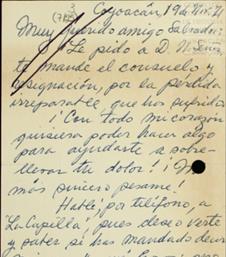 Coyoacán, 19 de Nov. 71
Muy querido amigo Salvador:
¡Le pido a D. N. Señor
te mande el consuelo y
resignación, por la pérdida
irreparable que has sufrido
¡Con todo mi corazón
quisiera poder hacer algo
para ayudarte a sobre-
llevar tu dolor! ¡
mas sincero pesame!
Hablé por teléfono, a
"La Capilla", pues deseo verte
y saber, si has mandado decir